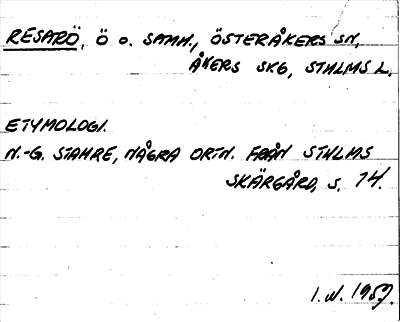 RESARÖ, Ö o. SAMH., ÖSTERÅKERS SN,
ÅKERS SKG, STHLMS L.
ETYMOLOGI.
N.-G. STAHRE, NÅGRA ORTN. FRÅN STHLMS
SKÄRGÅRD, S. 14.
I.N. 1959.